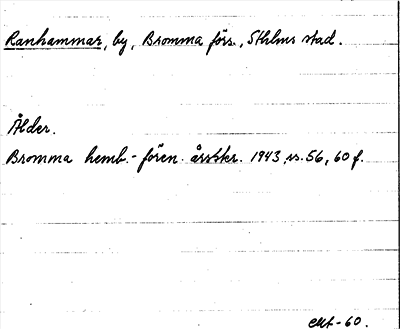 Ranhammar, by, Bromma förs., Sthlms stad.
Ålder.
Bromma hemb.-fören. årsskr. 1943, ss. 56, 60 f.
-60.